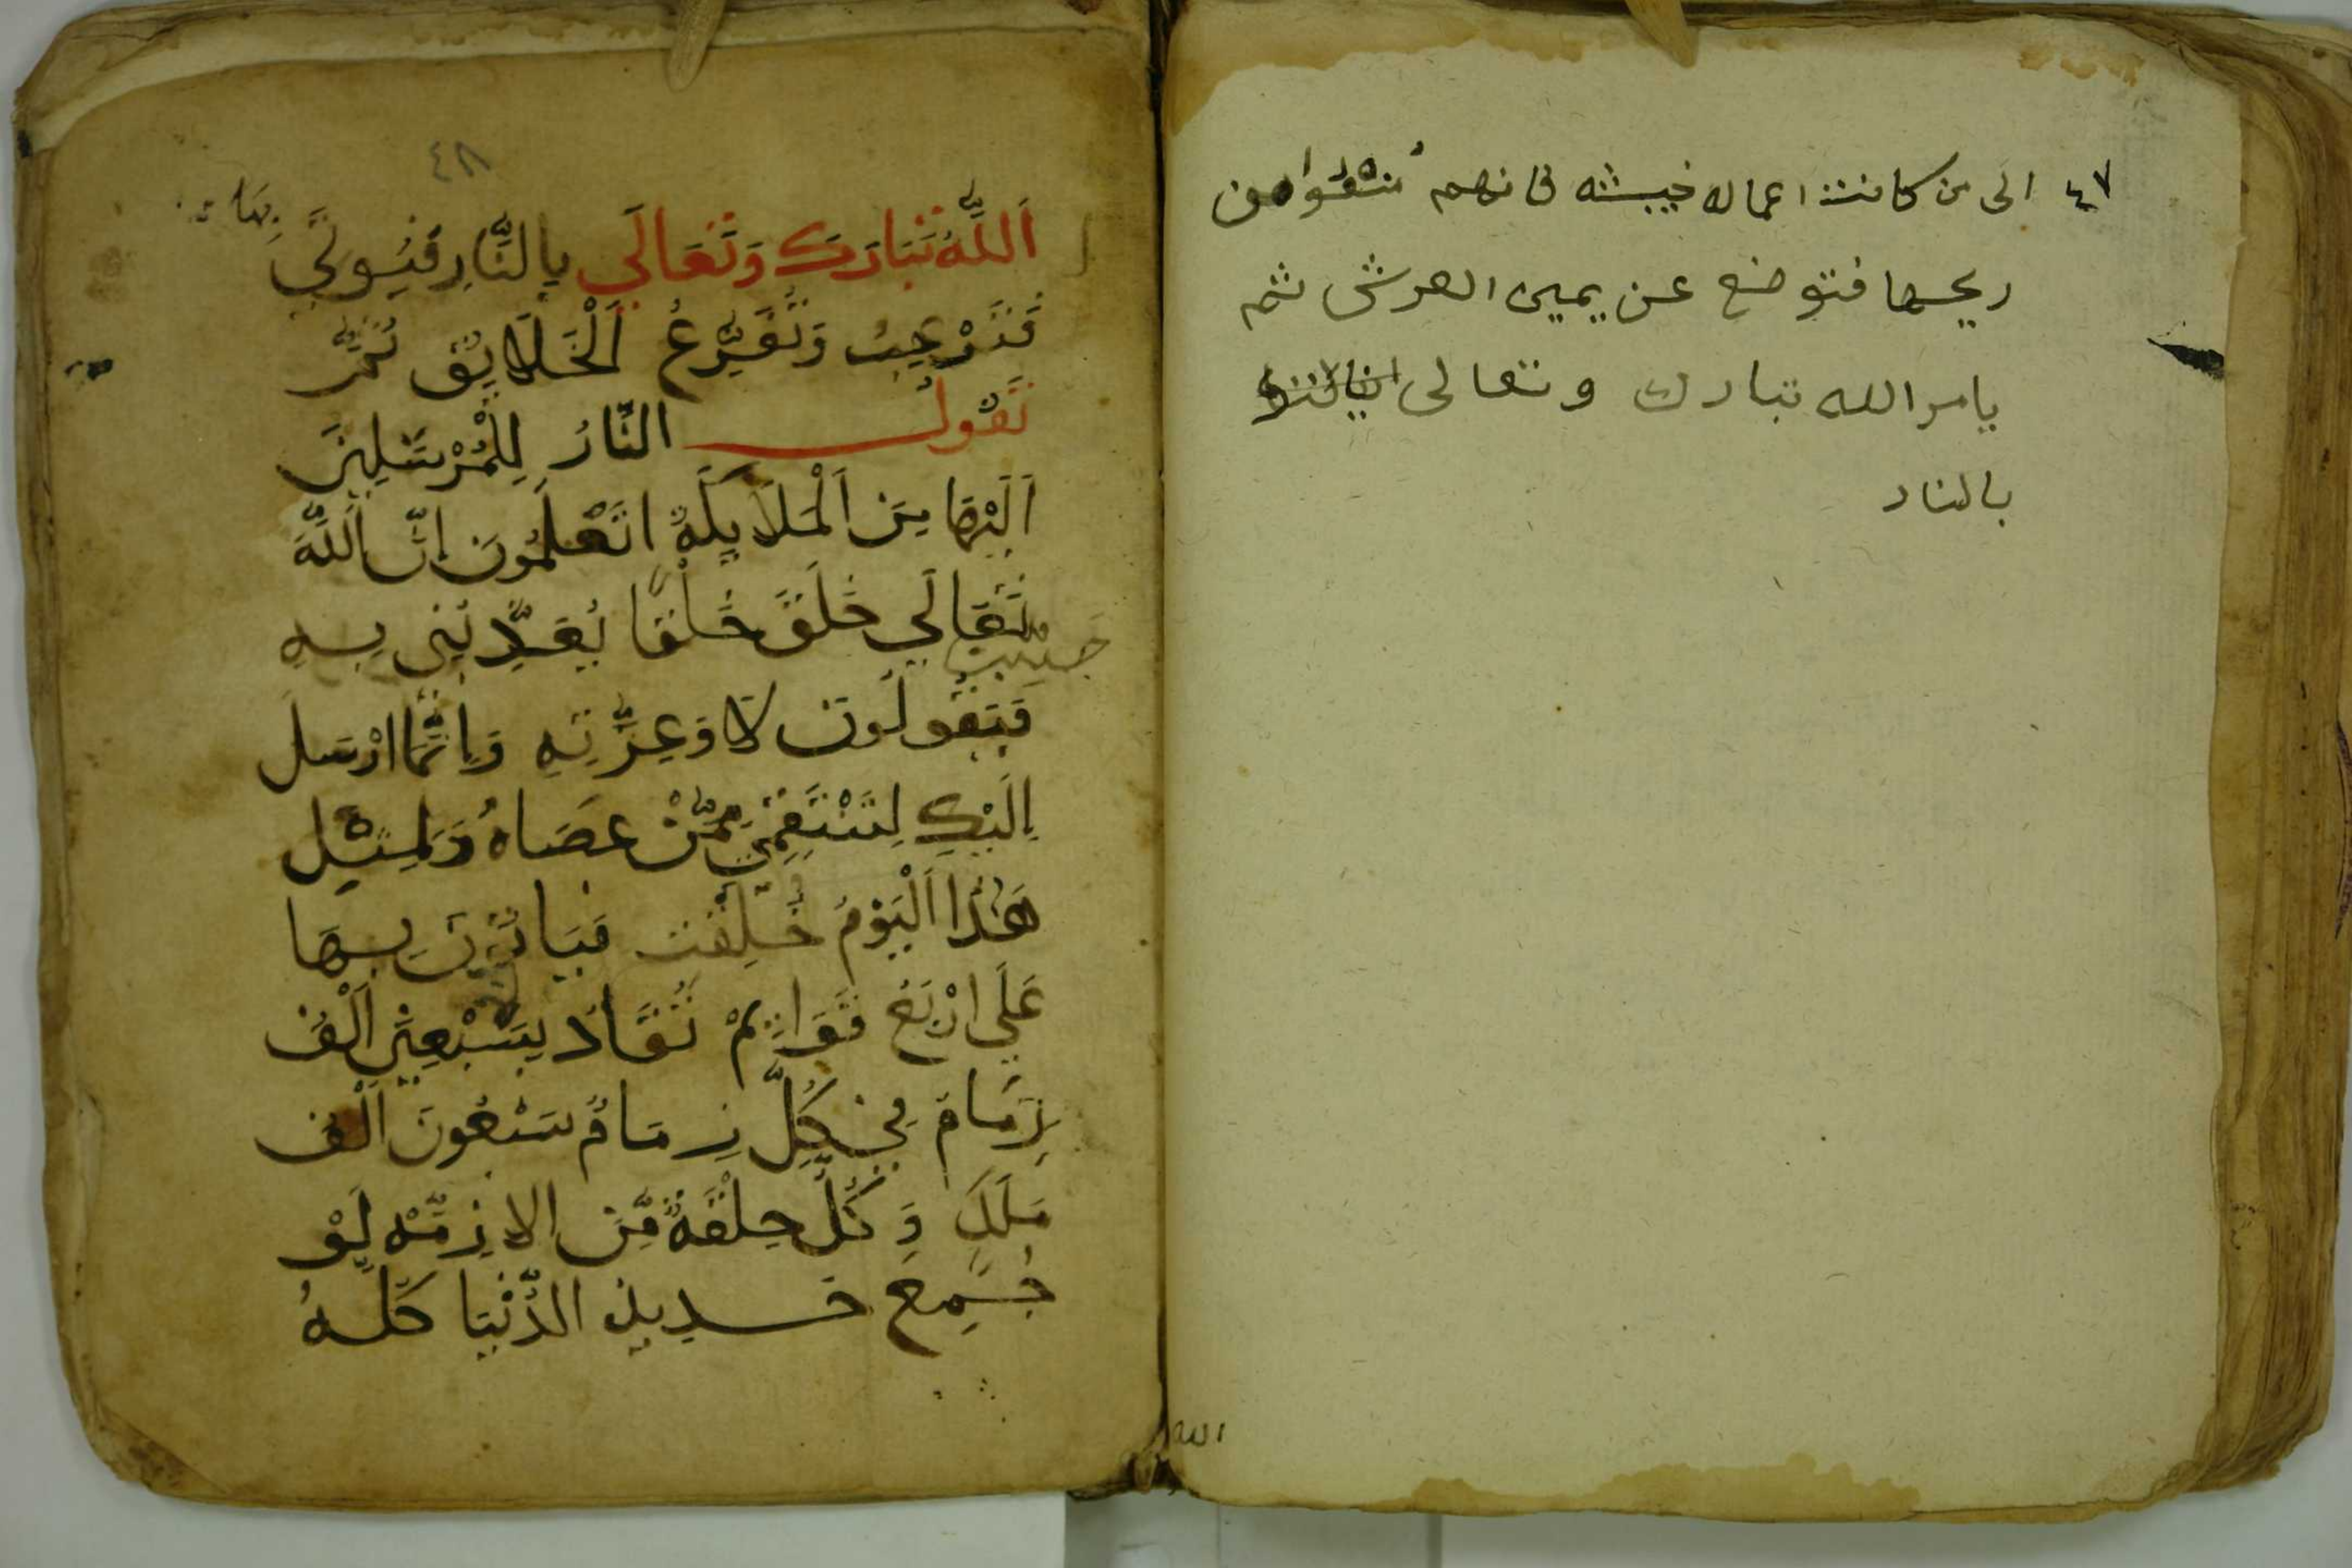 ٤٧ الى من كانت اعماله خبيثه فانهم
ريحها فتوضع عن يمين العرش ثم
يامر الله تبارك وتعالى
بالنار
الله
٤٨
بها
اَللَّهُ تَبَارَكَ وَتَعَالَي بِالنَّارِ فَيُوتَي
فَتَرْعِبُ وَتُفَزِّعُ اَلْخَلَايُقِ ثُمَّ
تَقُولُ النَّارُ لِلْمُرْسَلِينَ
اَلَيْهَا مِنَ اَلْمَلَايِكَةِ اتَعْلَمُونَ اِنَّ اَللَّهَ
تَعَالَي خَلَقَ خَلْقًا يُعَذِّبُنِي بِهِ
فَيَقُولُونَ لَا وَعِزَّتِهِ وَاِنَّمَا ارْسَلَ
اِلَيْكِ لِتَنْتَقِمِي مِمَّنْ عَصَاهُ وَلِمِثْلِ
هَذَا اَلْيَوْمُ خُلِقْت فَيَاتُونَ بِهَا
عَلَي ارْبَعِ قَوَايِمْ تُقَادُ بِسَبْعِينَ اَلْف
زِمَام فِي كُلِّ زِمَامٌ سَبْعُونَ اَلْف
مَلَكِ وَكُلُّ حلْقَةٌ مِّنَ الازِمَّهْ لَوْ
جُمِعَ حَدِيدِ الدُّنْيَا كُلُّهُ